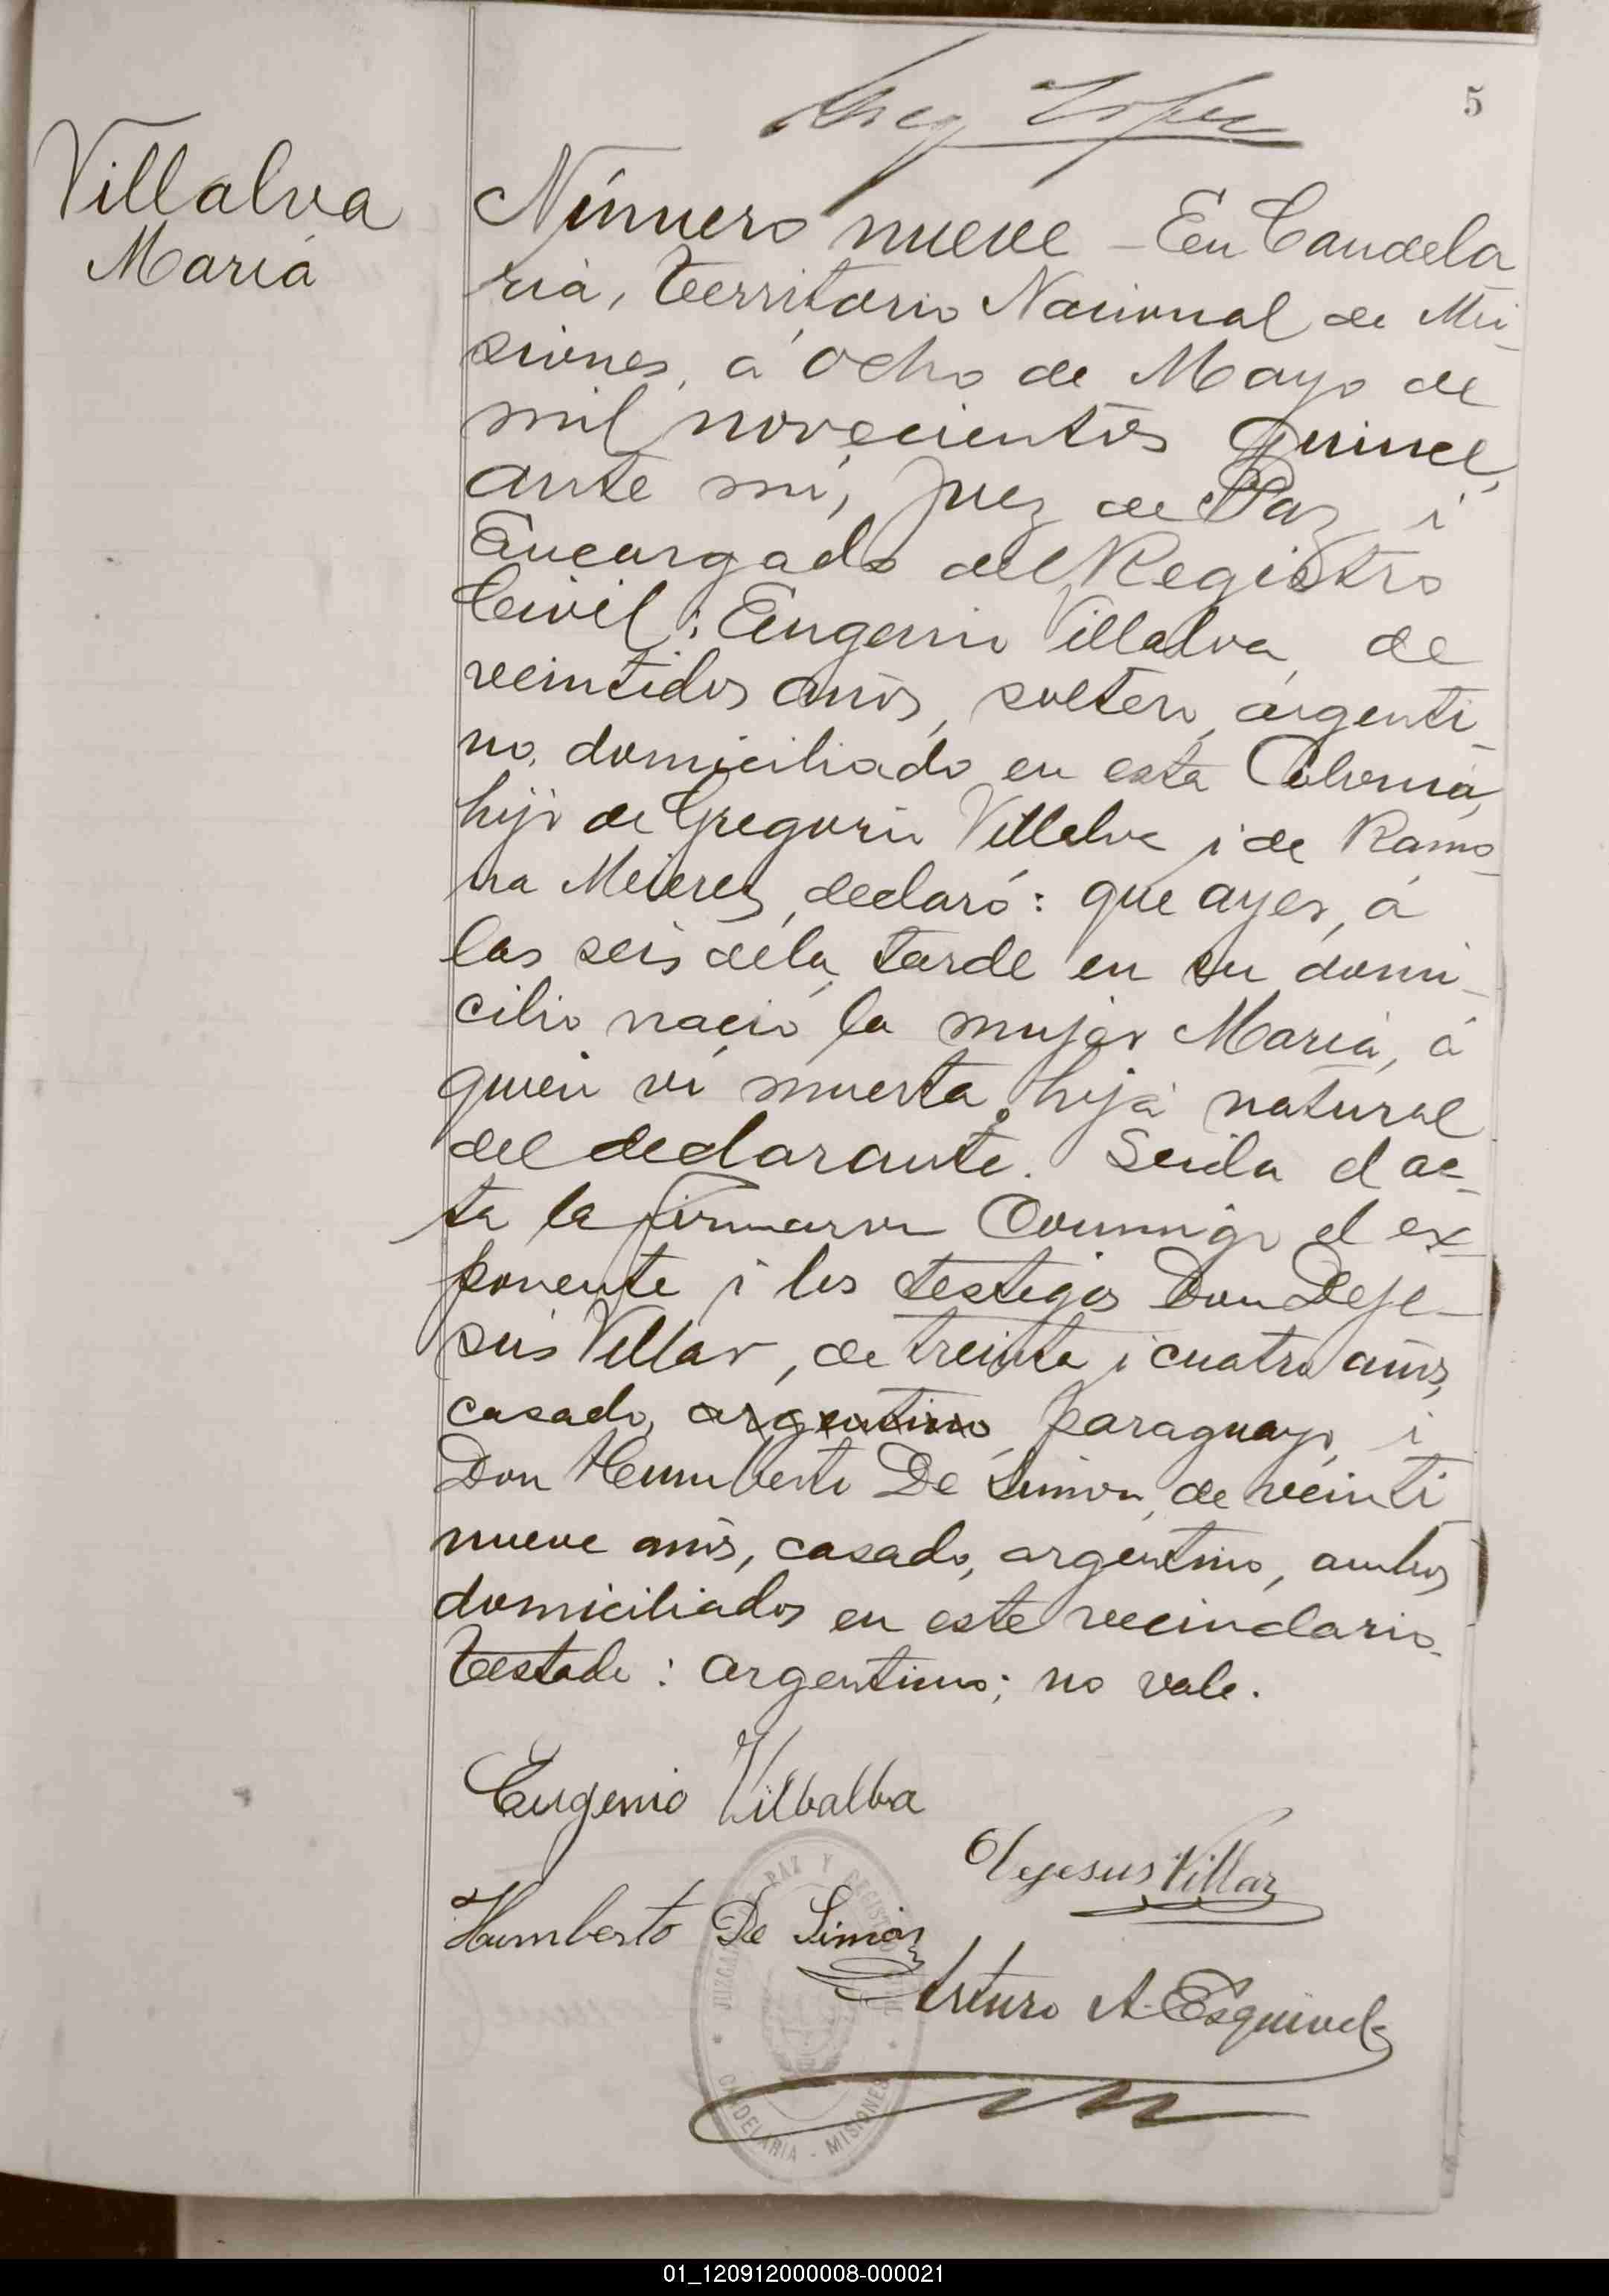 5
Villalva
Maria
Número nueve – En Candela
ria, Territorio Nacional de Mi-
siones, á ocho de Mayo de
mil novecientos quince,
ante mi, Juez de Paz i
Encargado del Registro
Civil: Eugenio Villalva, de
veintidos años, soltero, argenti-
no, domiciliado en esta Colonia,
hijo de Gregorio Villalva i de Ramo-
na Meierez, declaró: que ayer, á
las seis de la tarde en su domi-
cilio nació la mujer Maria, á
quien vi muerta, hija natural
del declarante. Leida el ac-
ta la firmaron conmigo el ex-
ponente i los testigos Don Deje-
sus Villar, de treinta i cuatro años,
casado, argentino, paraguayo, i
Don Humberto De Simon, de veinti-
nueve años, casado, argentino, ambos
domiciliados en este vecindario.
Testado: argentino; no vale.
Eugenio Vilbalba
Dejesus Villar
Humberto De Simon
Arturo A. Esquivel
JUZGADO DE PAZ Y REGISTRO CIVIL
CANDELARIA - MISIONES
01_120912000008-000021